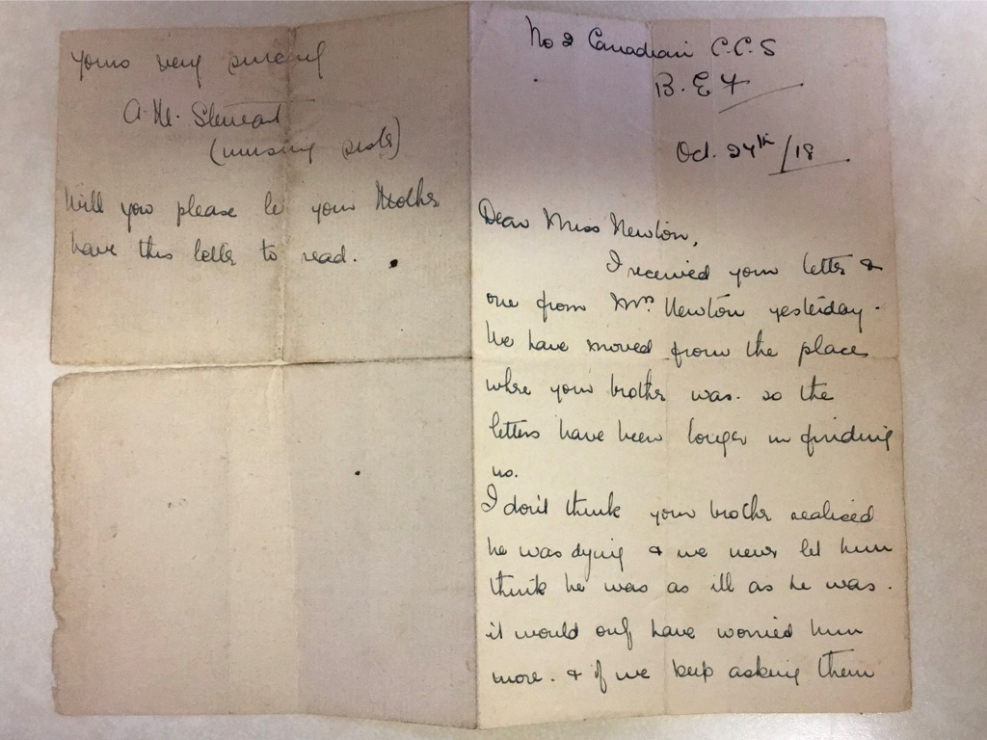 No 2 Canadian C.C.S
B.E.F
Oct. 24th/18
Dear Miss Newton,
I received your letter &
one from Mrs Newton yesterday.
We have moved from the place
where your brother was. so the
letters have been longer in finding
us.
I don't think your brother realised
he was dying & we never let him
think he was as ill as he was.
it would only have worried him
more. & if we keep asking them
yours very sincerely
A. M. Stewart
(nursing sister)
Will you please let your Mother
have this letter to read.